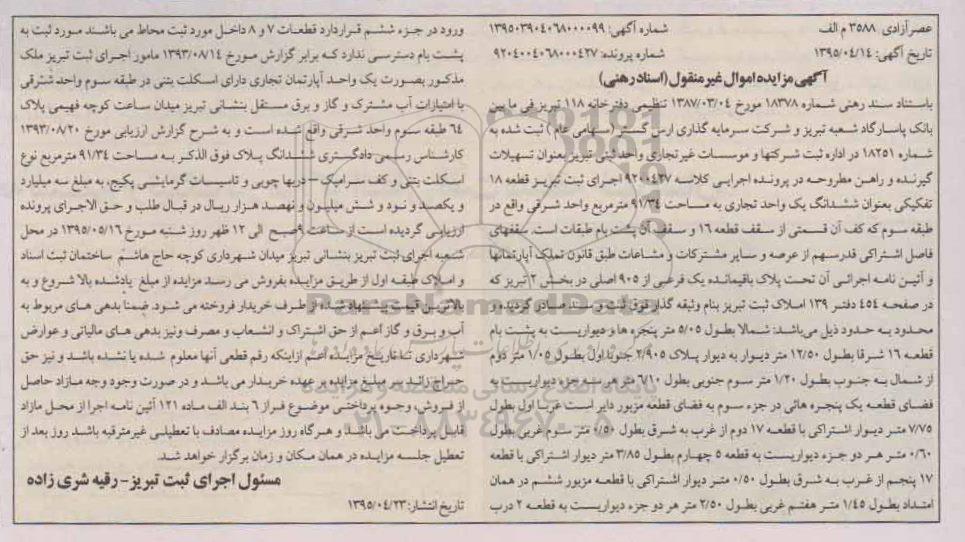 عصرآزادی ۳۵۸۸ م الف شماره آگهی: ۱۳۹۵۰۳۹۰۴۰۶۸۰۰۰۰۹۹
تاریخ آگهی: ۱۳۹۵/۰۴/۱۴ شماره پرونده: ۹۲۰۴۰۰۴۰۶۸۰۰۰۴۲۷
آگهی مزایده اموال غیر منقول (اسناد رهنی)
باستناد سند رهنی شماره ۱۸۳۷۸ مورخ ۱۳۸۷/۰۳/۰۴ تنظیمی دفترخانه ۱۱۸ تبریز فی ما بین
بانک پاسارگاد شعبه تبریز و شرکت سرمایه گذاری ارس گستر (سهامی عام) ثبت شده به
شماره ۱۸۲۵۱ در اداره ثبت شرکتها و موسسات غیرتجاری واحد ثبتی تبریز بعنوان تسهیلات
گیرنده و راهن مطروحه در پرونده اجرایی کلاسه ۹۲۰۰۴۲۷ اجرای ثبت تبریز قطعه ۱۸
تفکیکی بعنوان ششدانگ یک واحد تجاری به مساحت ۹۱/۳۴ مترمربع واحد شرقی واقع در
طبقه سوم که کف آن قسمتی از سقف قطعه ۱۶ و سقف آن پشت بام طبقات است. سقفهای
فاصل اشتراکی قدرسهم از عرصه و سایر مشترکات و مشاعات طبق قانون تملک آپارتمانها
و آئین نامه اجرائی آن تحت پلاک باقیمانده یک فرعی از ۹۰۵ اصلی در بخش ۲ تبریز که
در صفحه ۴۵۴ دفتر ۱۳۹ املاک ثبت تبریز بنام وثیقه گذار فوق ثبت و سند صادر گردیده و
محدود به حدود ذیل می‌باشد: شمالا بطول ۵/۰۵ متر پنجره ها و دیواریست به پشت بام
قطعه ۱۶ شرقا بطول ۱۲/۵۰ متر دیوار به دیوار پلاک ۲/۹۰۵ جنوبا اول بطول ۱/۰۵ متر دوم
از شمال به جنوب بطول ۱/۲۰ متر سوم جنوبی بطول ۶/۱۰ متر هر سه جزء دیواریست به
فضای قطعه یک پنجره هائی در جزء سوم به فضای قطعه مزبور دایر است غربا اول بطول
۷/۷۵ متر دیوار اشتراکی با قطعه ۱۷ دوم از غرب به شرق بطول ۰/۵۰ متر سوم غربی بطول
۰/۶۰ متر هر دو جزء دیواریست به قطعه ۵ چهارم بطول ۳/۸۵ متر دیوار اشتراکی با قطعه
۱۷ پنجم از غرب به شرق بطول ۰/۵۰ متر دیوار اشتراکی با قطعه مزبور ششم در همان
امتداد بطول ۱/۴۵ متر هفتم غربی بطول ۲/۵۰ متر هر دو جزء دیواریست به قطعه ۲ درب
ورود در جزء ششم قراردارد قطعات ۷ و ۸ داخل مورد ثبت محاط می باشند مورد ثبت به
پشت بام دسترسی ندارد که برابر گزارش مورخ ۱۳۹۳/۰۸/۱۴ مامور اجرای ثبت تبریز ملک
مذکور بصورت یک واحد آپارتمان تجاری دارای اسکلت بتنی در طبقه سوم واحد شرقی
با امتیازات آب مشترک و گاز و برق مستقل بنشانی تبریز میدان ساعت کوچه فهیمی پلاک
۶۴ طبقه سوم واحد شرقی واقع شده است و به شرح گزارش ارزیابی مورخ ۱۳۹۳/۰۸/۲۰
کارشناس رسمی دادگستری ششدانگ پلاک فوق الذکر به مساحت ۹۱/۳۴ مترمربع نوع
اسکلت بتنی و کف سرامیک – دربها چوبی و تاسیسات گرمایشی پکیج، به مبلغ سه میلیارد
و یکصد و نود و شش میلیون و نهصد هزار ریال در قبال طلب و حق الاجرای پرونده
ارزیابی گردیده است از ساعت ۹صبح الی ۱۲ ظهر روز شنبه مورخ ۱۳۹۵/۰۵/۱۶ در محل
شعبه اجرای ثبت تبریز بنشانی تبریز میدان شهرداری کوچه حاج هاشم ساختمان ثبت اسناد
و املاک طبقه اول از طریق مزایده بفروش می رسد مزایده از مبلغ یادشده بالا شروع و به
بالاترین قیمت پیشنهاد شده از طرف خریدار فروخته می شود. ضمنا بدهی های مربوط به
آب و برق و گاز اعم از حق اشتراک و انشعاب و مصرف ونیز بدهی های مالیاتی و عوارض
شهرداری تا تاریخ مزایده اعم ازاینکه رقم قطعی آنها معلوم شده یا نشده باشد و نیز حق
حراج زائد بر مبلغ مزایده بر عهده خریدار می باشد و در صورت وجود وجه مازاد حاصل
از فروش، وجوه پرداختی موضوع فراز ۶ بند الف ماده ۱۲۱ آئین نامه اجرا از محل مازاد
قابل پرداخت می باشد و هرگاه روز مزایده مصادف با تعطیلی غیرمترقبه باشد روز بعد از
تعطیل جلسه مزایده در همان مکان و زمان برگزار خواهد شد.
مسئول اجرای ثبت تبریز- رقیه شری زاده
تاریخ انتشار: ۱۳۹۵/۰۴/۲۳